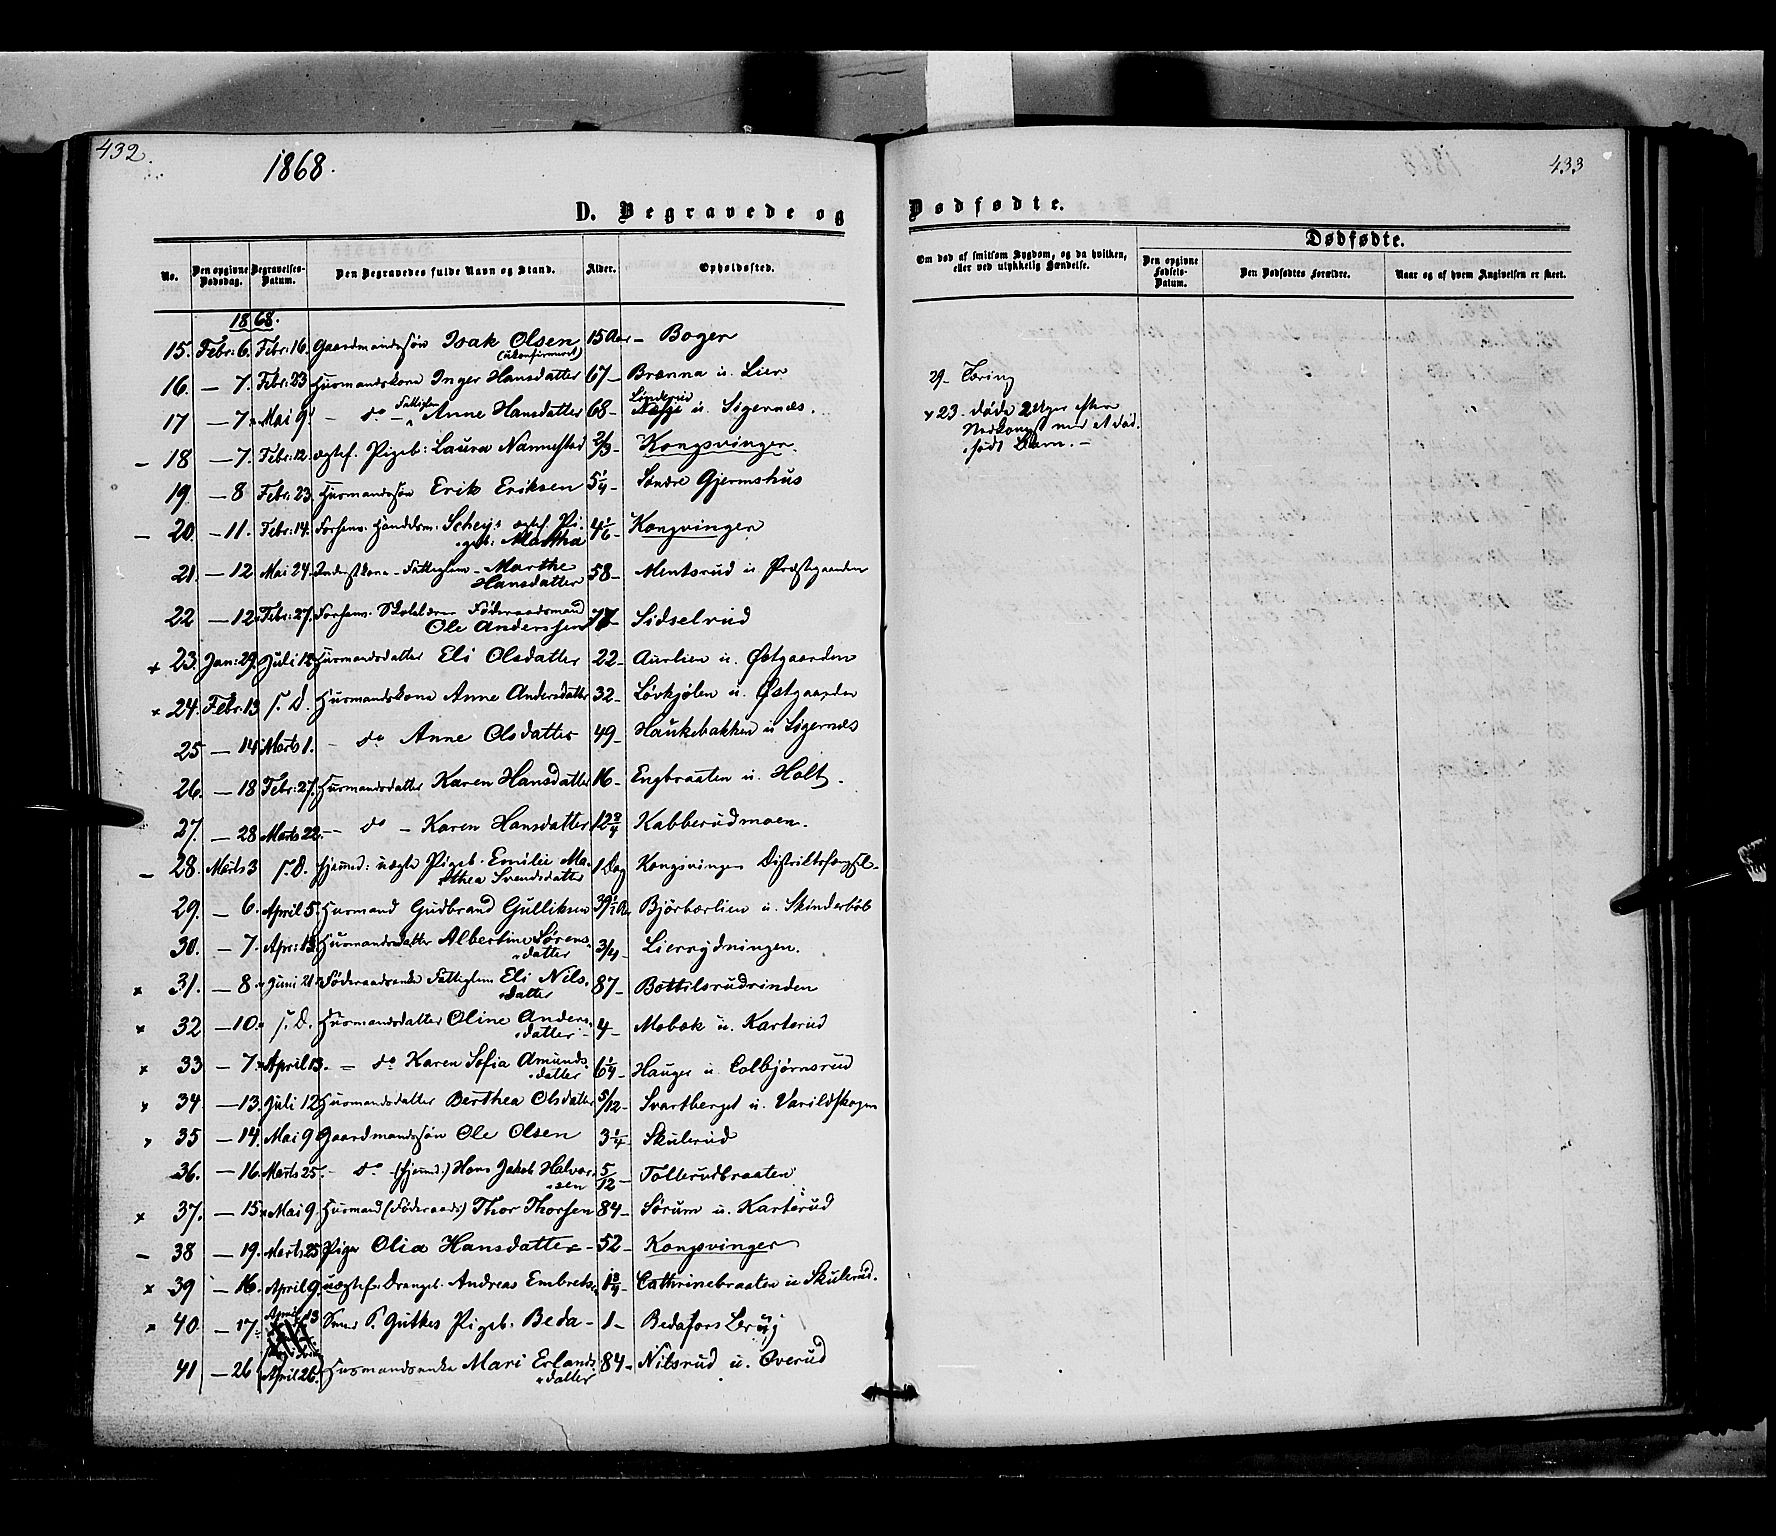 432.
1868.
D. Begravede og
No.
Den opgivne Dødsdag.
Begravelses-Datum.
Den Begravedes fulde Navn og Stand.
Alder.
Opholdssted.
1868.
15. Febr: 6. Febr: 16. Gaardmandssøn Isak Olsen (ukonfirmeret) 15 Aar - Boger
16. - 7. Febr: 23 Husmandskone Inger Hansdatter 67 - Brænna u. Lier
17 - 7. Mai 9. - do - Fattiglem Anne Hansdatter 68 - Linderud u. Sigernæs.
- 18 - 7. Febr: 12. ægtef. Pigeb: Laura Nannestad 2/3 - Kongsvinger.
19. - 8 Febr. 23. Husmandssøn Erik Eriksen 5 1/4 - Søndre Gjermshus
- 20. - 11. Febr: 14. Forhenv. Handelsm: Scheys ægtef. Pi-
geb: Martha 4 1/6 - Kongvinger
21. - 12 Mai 24. Inderstkone - Fattiglem - Marthe
Hansdatter 58 - Mentsrud u. Præstgaarden
22 - 12. Febr: 27. Forhenv. Skolelærer Føderaadsmand
Ole Anderssen 77 - Sidselrud
x 23. Jan: 29. Juli 12. Husmandsdatter Eli Olsdatter 22 - Aurlien u. Østgaarden
x 24. Febr. 13 s. D. Husmandskone Anne Andersdatter 32 - Løvhjølen u. Østgaarden
25 - 14 Marts 1. - do Anne Olsdatter 49 - Haukebakken u Sigernæs
26. - 18 Febr: 27. Husmandsdatter Karen Hansdatter 16 - Engbraaten u. Holt.
27. - 28 Marts 22. - do - Karen Hansdatter 12 3/4 Kabberudmoen.
- 28. Marts 3 s. D. hjemmed: uægte Pigeb. Emilie Ma-
thea Svendsdatter 1 Dag Kongsvinger Distriktsfængsel
29. - 6. April 5. Husmand Gudbrand Gulliksen 39 1/2 A. Bjørbærlien u. Skinderbøl
30. - 7. Apr: 13. Husmandsdatter Albertine Sørens-
datter 3/4 - Lierrydningen.
x 31. - 8. Juni 21. Føderaadsenke Fattiglem Eli Nils-
datter 87 - Bottilsrudrinden
x 32 - 10. s. D. Husmandsdatter Oline Anders-
datter 4 - Mobæk u. Karterud
x 33 - 7. April 13. - do Karen Sofia Amunds-
datter 6 1/4 - Hauger u. Colbjørnsrud
x 34 - 13. Juli 12 Husmandsdatter Berthea Olsdatter 5/12 - Svartberget u. Varildskogen
x 35 - 14. Mai 9 Gaardmandssøn Ole Olsen 3 1/4 - Skulerud
36. - 16. Marts 25. - do - (hjemmd.) Hans Jakob Halvor-
sen 5/12 - Tollerudbraaten
x 37. - 15. Mai 9. Husmand (Føderaads) Thor Thorsen 84 - Sørum u. Karterud
- 38 - 19. Marts 25 Pige Olia Hansdatter - 52 - Kongsvinger
x 39 - 16. April 9. uægtef. Drengeb. Andreas Embretsen 1 3/4 - Cathrinebraaten u Skulerud.
x 40 - 17. April 13 Smed P. Guttkes Pigeb. Beda - 1 - Bedafors
41 - 26 April 26. Husmandsenke Mari Erlands-
datter 84 - Nilsrud u. Overud
433
Dødfødte.
Om død af smitsom Sygdom, og da hvilken, eller ved ulykkelig Hændelse.
Dødfødte.
Den opgivne Fødsels-Datum.
Den Dødfødtes Forældre.
Naar og af hvem Angivelsen er skeet.
29 - Tæring
x 23. døde 2 Uger efter
Nedkomst med et død-
født Barn. -